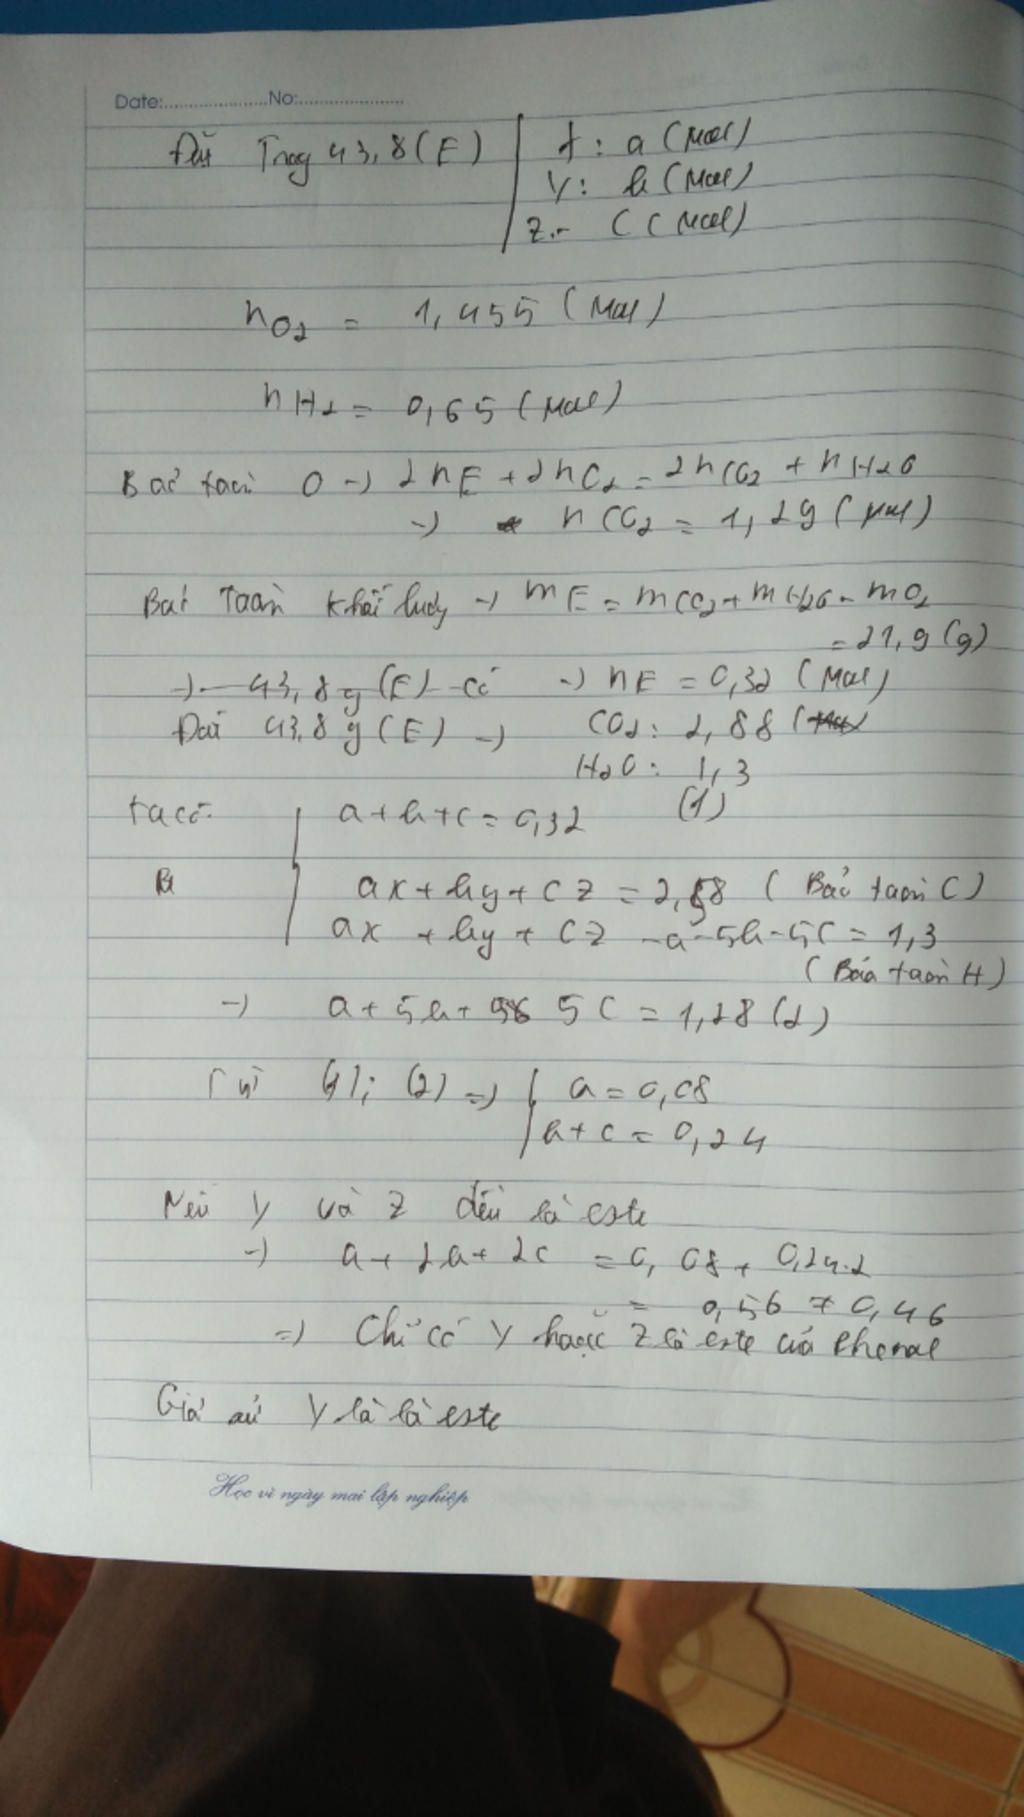 Date:.....................No:.....................
Đặt Trong 43,8(E) X: a (Mol)
Y: b (Mol)
Z: C (Mol)
nO2 = 1,455 (Mol)
nH2 = 0,65 (Mol)
Bảo toàn O → 2nE + 2nO2 = 2nCO2 + nH2O
→ nCO2 = 1,29 (Mol)
Bảo Toàn khối lượng → mE = mCO2 + mH2O - mO2
= 21,9 (g)
→ 43,8g (E) có → nE = 0,32 (Mol)
Đốt 43,8g (E) → CO2: 2,88
H2O: 1,3
Ta có: a+b+c = 0,32 (1)
B ax+by+cz = 2,58 (Bảo toàn C)
ax + by + cz - a - 5b - 5c = 1,3
(Bảo toàn H)
→ a + 5b + 5c = 1,28 (2)
Từ (1); (2) => a = 0,08
b+c = 0,24
Nếu Y và Z đều là este
→ a + 2b + 2c = 0,08 + 0,24.2
= 0,56 ≠ 0,46
=> Chỉ có Y hoặc Z là este của Phenol
Giả sử Y là là este
Học vì ngày mai lập nghiệp